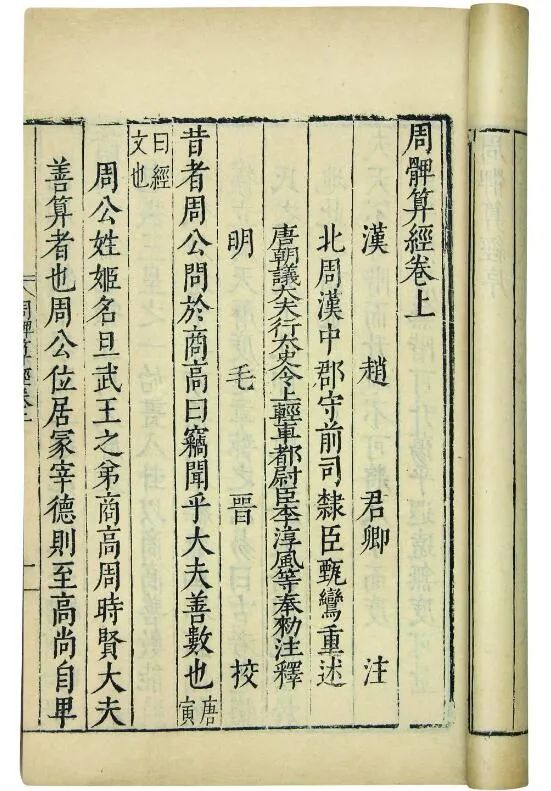 周髀算經卷上
漢 趙 君卿 注
北周漢中郡守前司隸臣甄鸞重述
唐朝議大夫行太史令上輕車都尉臣李淳風等奉勑注釋
明 毛 晉 挍
昔者周公問於商高曰竊聞乎大夫善數也唐寅
曰經文也
周公姓姬名旦武王之弟商高周時賢大夫
善算者也周公位居冢宰德則至高尚自卑
周髀算經卷上 一